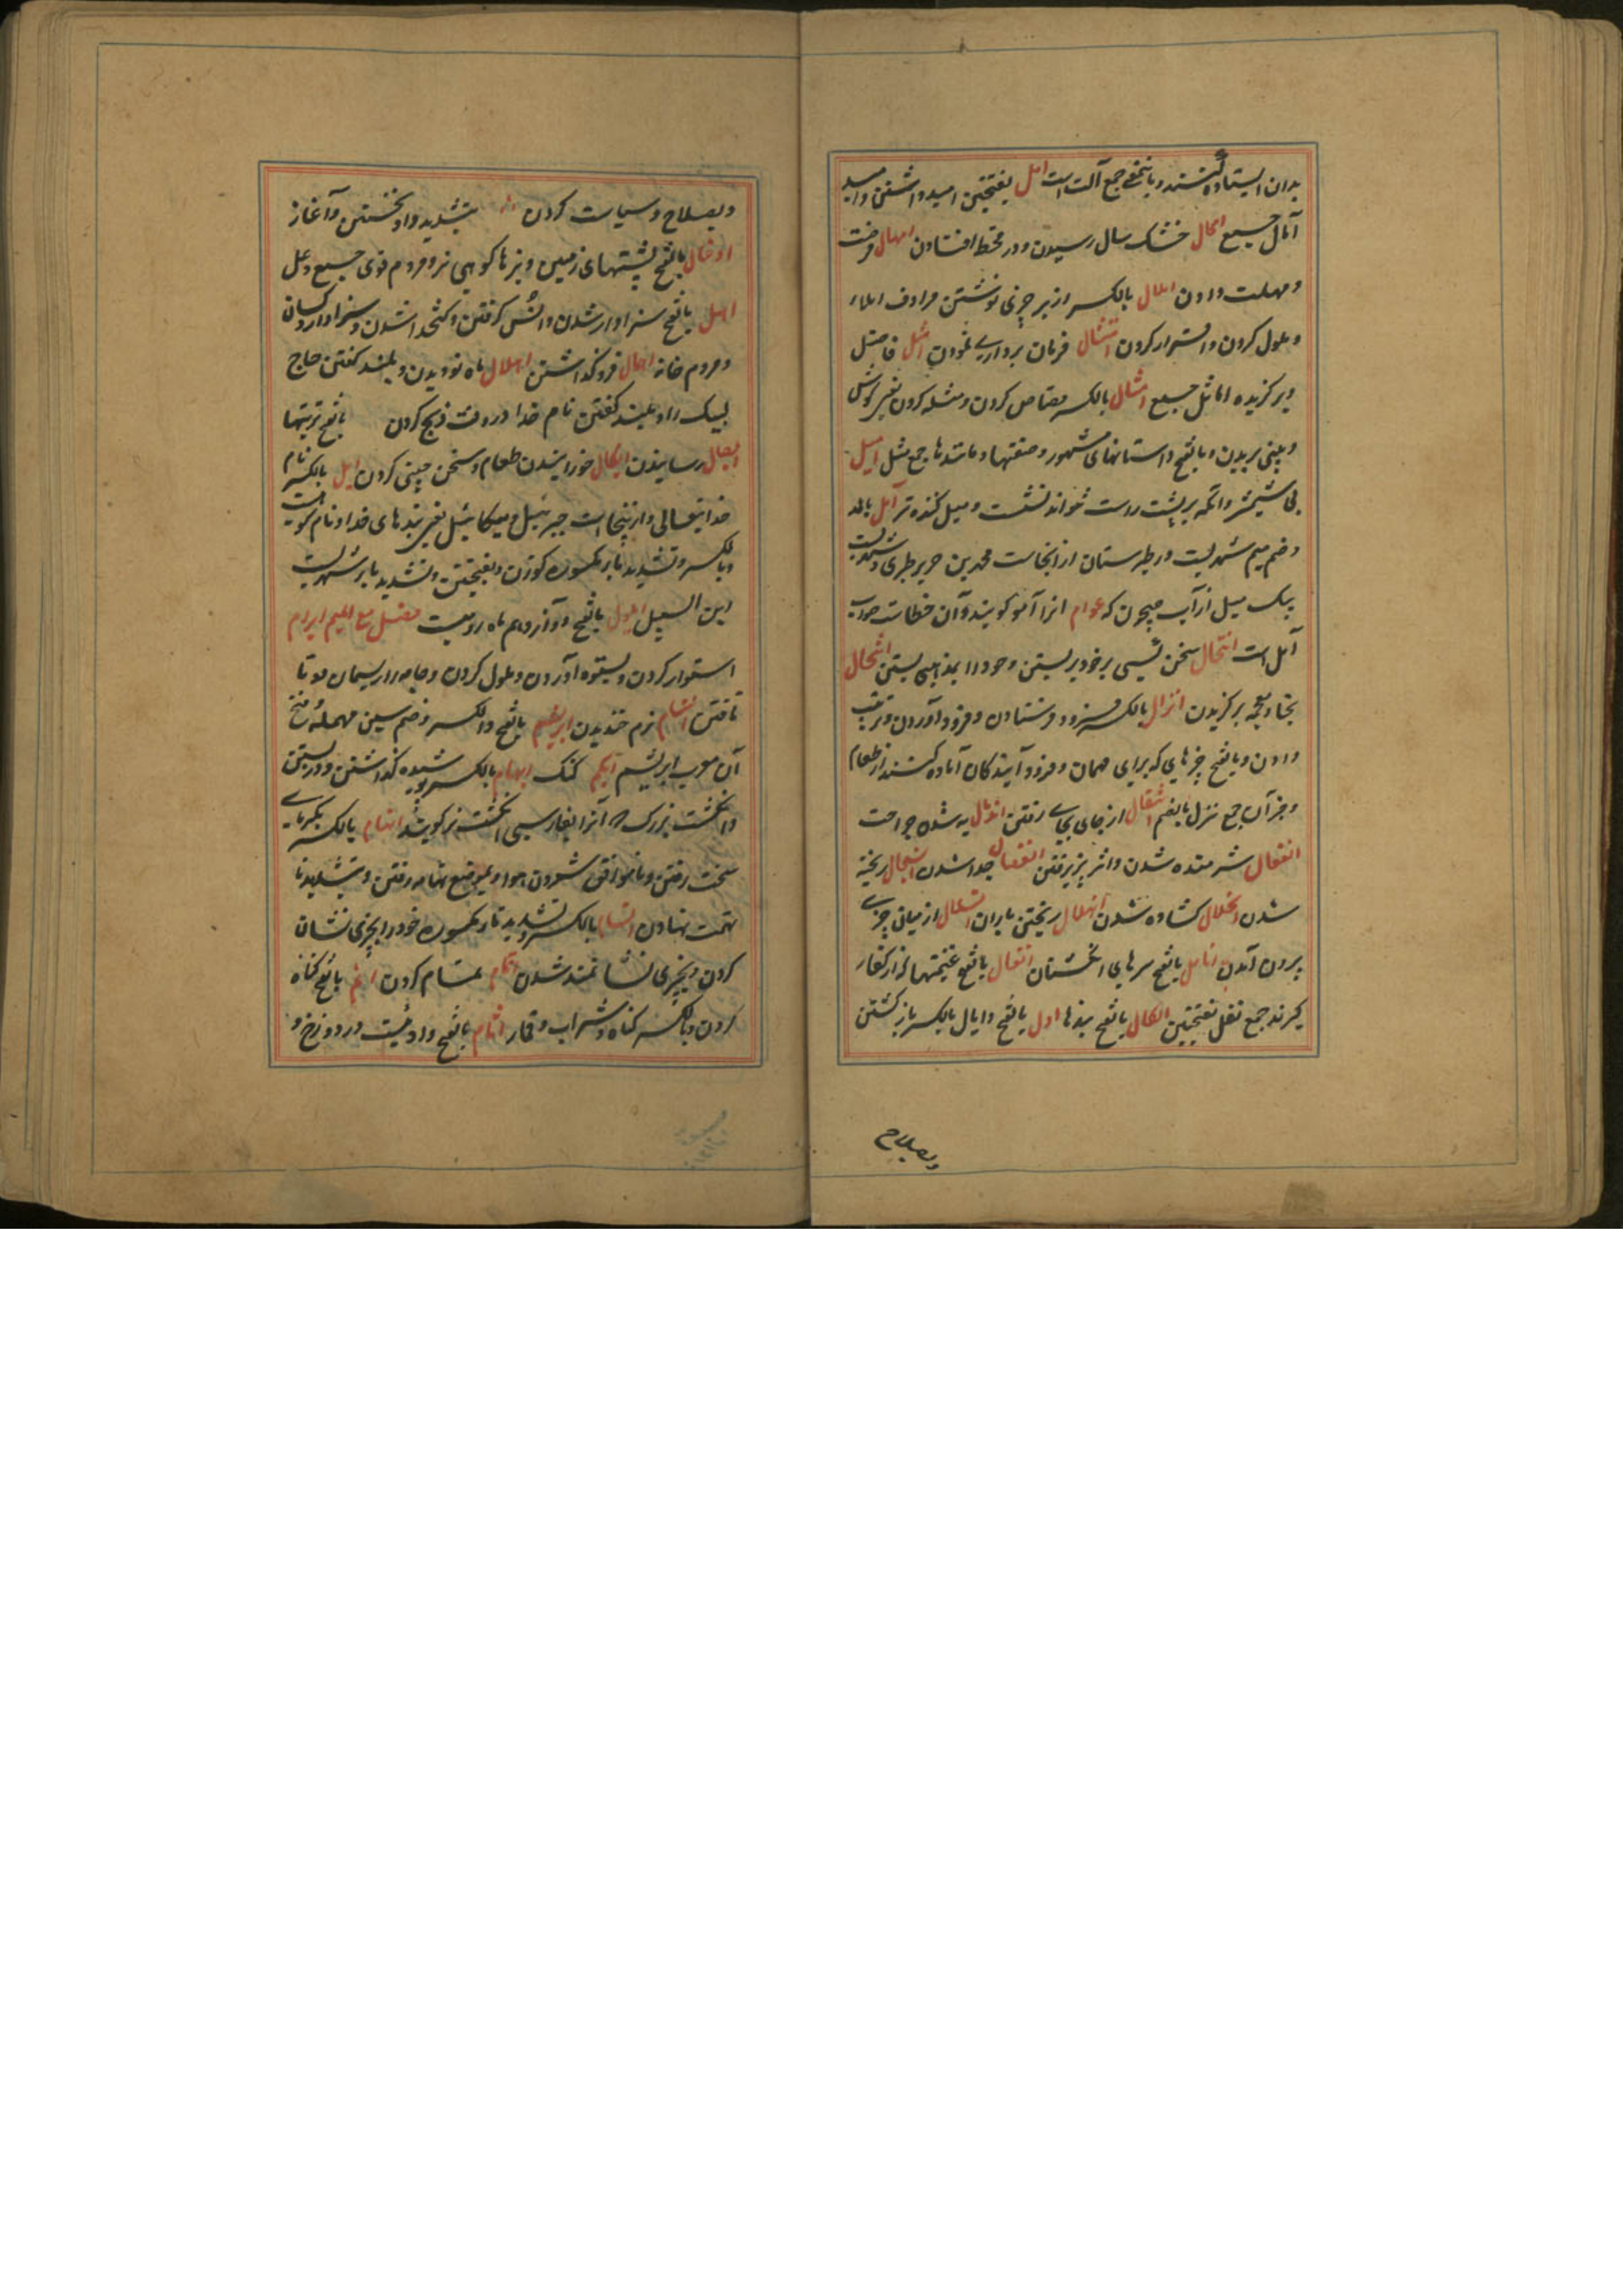 بدان ایستاده کنند و بالفتح جمع آلت است امل بفتحتین امید داشتن و امید
آمال جمع امحال خشک سال رسیدن و در قحط افتادن امهال فرصت
و مهلت دادن املال بالکسر از بر چیزی نوشتن مرادف املاء
و ملول کردن و استوار کردن امتثال فرمان برداری نمودن امثل فاضل
و برگزیده اماثل جمع امثال بالکسر قصاص کردن و مثله کردن یعنی گوش
و بینی بریدن و بالفتح داستانهای مشهور و صفتها و مانندها جمع مثل امیل
بی شمشیر و آنکه بر پشت راست نتواند نشست و میل کننده تر آمل بالمد
و ضم میم شهریست در طبرستان از انجاست محمد بن جریر طبری و شهریست
بیک میل از آب جیحون که عوام انرا آمو گویند و آن خطاست صواب
آمل است انتحال سخن کسی بر خود بستن و خود را بمذهبی بستن انتخال
بخاء معجمه برگزیدن انزال بالکسر فرود فرستادن و فرود آوردن و ترتیب
دادن و بالفتح چیزهایی که برای مهمان و فرود آیندگان آماده کنند از طعام
و جز آن جمع نزل بالضم انتقال از جای بجای رفتن اندمال به شدن جراحت
انفعال شرمنده شدن و اثر پذیرفتن انفصال جدا شدن انسجال ریخته
شدن انحلال گشاده شدن انهلال ریختن باران انسلال از میان چیزی
برون آمدن انامل بالفتح سرهای انگشتان انفال بالفتح غنیمتها که از کفار
گیرند جمع نفل بفتحتین انکال بالفتح بندها اول بالفتح و ایال بالکسر باز گشتن
وبصلاح
وبصلاح و سیاست کردن بتشدید واو نخستین و آغاز
اوعال بالفتح پشتهای زمین و بزهای کوهی نر و مردم قوی جمع وعل
اهل بالفتح سزاوار شدن و انس گرفتن و کتخدا شدن و سزاوار و کسان
و مردم خانه اهمال فرو گذاشتن اهلال ماه نو دیدن و بلند گفتن حاج
لبیک را و بلند گفتن نام خدا در وقت ذبح کردن بالفتح تربتها
ایصال رسانیدن ایکال خورانیدن طعام و سخن چینی کردن ایل بالکسر نام
خدایتعالی و ازینجاست جبرئیل و میکائیل یعنی بندهای خدا و نام کوهیست
و بالکسر و تشدید یاء مکسوره گوزن و بفتحتین و تشدید یا بر شهریست
ابن السبیل ایلول بالفتح دوازدهم ماه رومیست فصل مع المیم ابرام
استوار کردن و بستوه آوردن و ملول کردن و جامه را ریسمان دوتا
تافتن ابتسام نرم خندیدن ابریسم بالفتح و الکسر و ضم سین مهمله و فتح
آن معرب ابریشم ابکم گنگ ابهام بالکسر پوشیده گذاشتن و در بستن
و انگشت بزرگ که آنرا بفارسی انگشت نر گویند اتهام بالکسر بگرمای
سخت رفتن و ناموافق شمردن هوا و بموضع تهامه رفتن و بتشدید تا
تهمت نهادن اتسام بالکسر و تشدید تاء مکسوره خود را بچیزی نشان
کردن و بچیزی نشانمند شدن اتمام تمام کردن اثم بالفتح گناه
کردن و بالکسر گناه و شراب و قمار اثام بالفتح وادئیست در دوزخ و